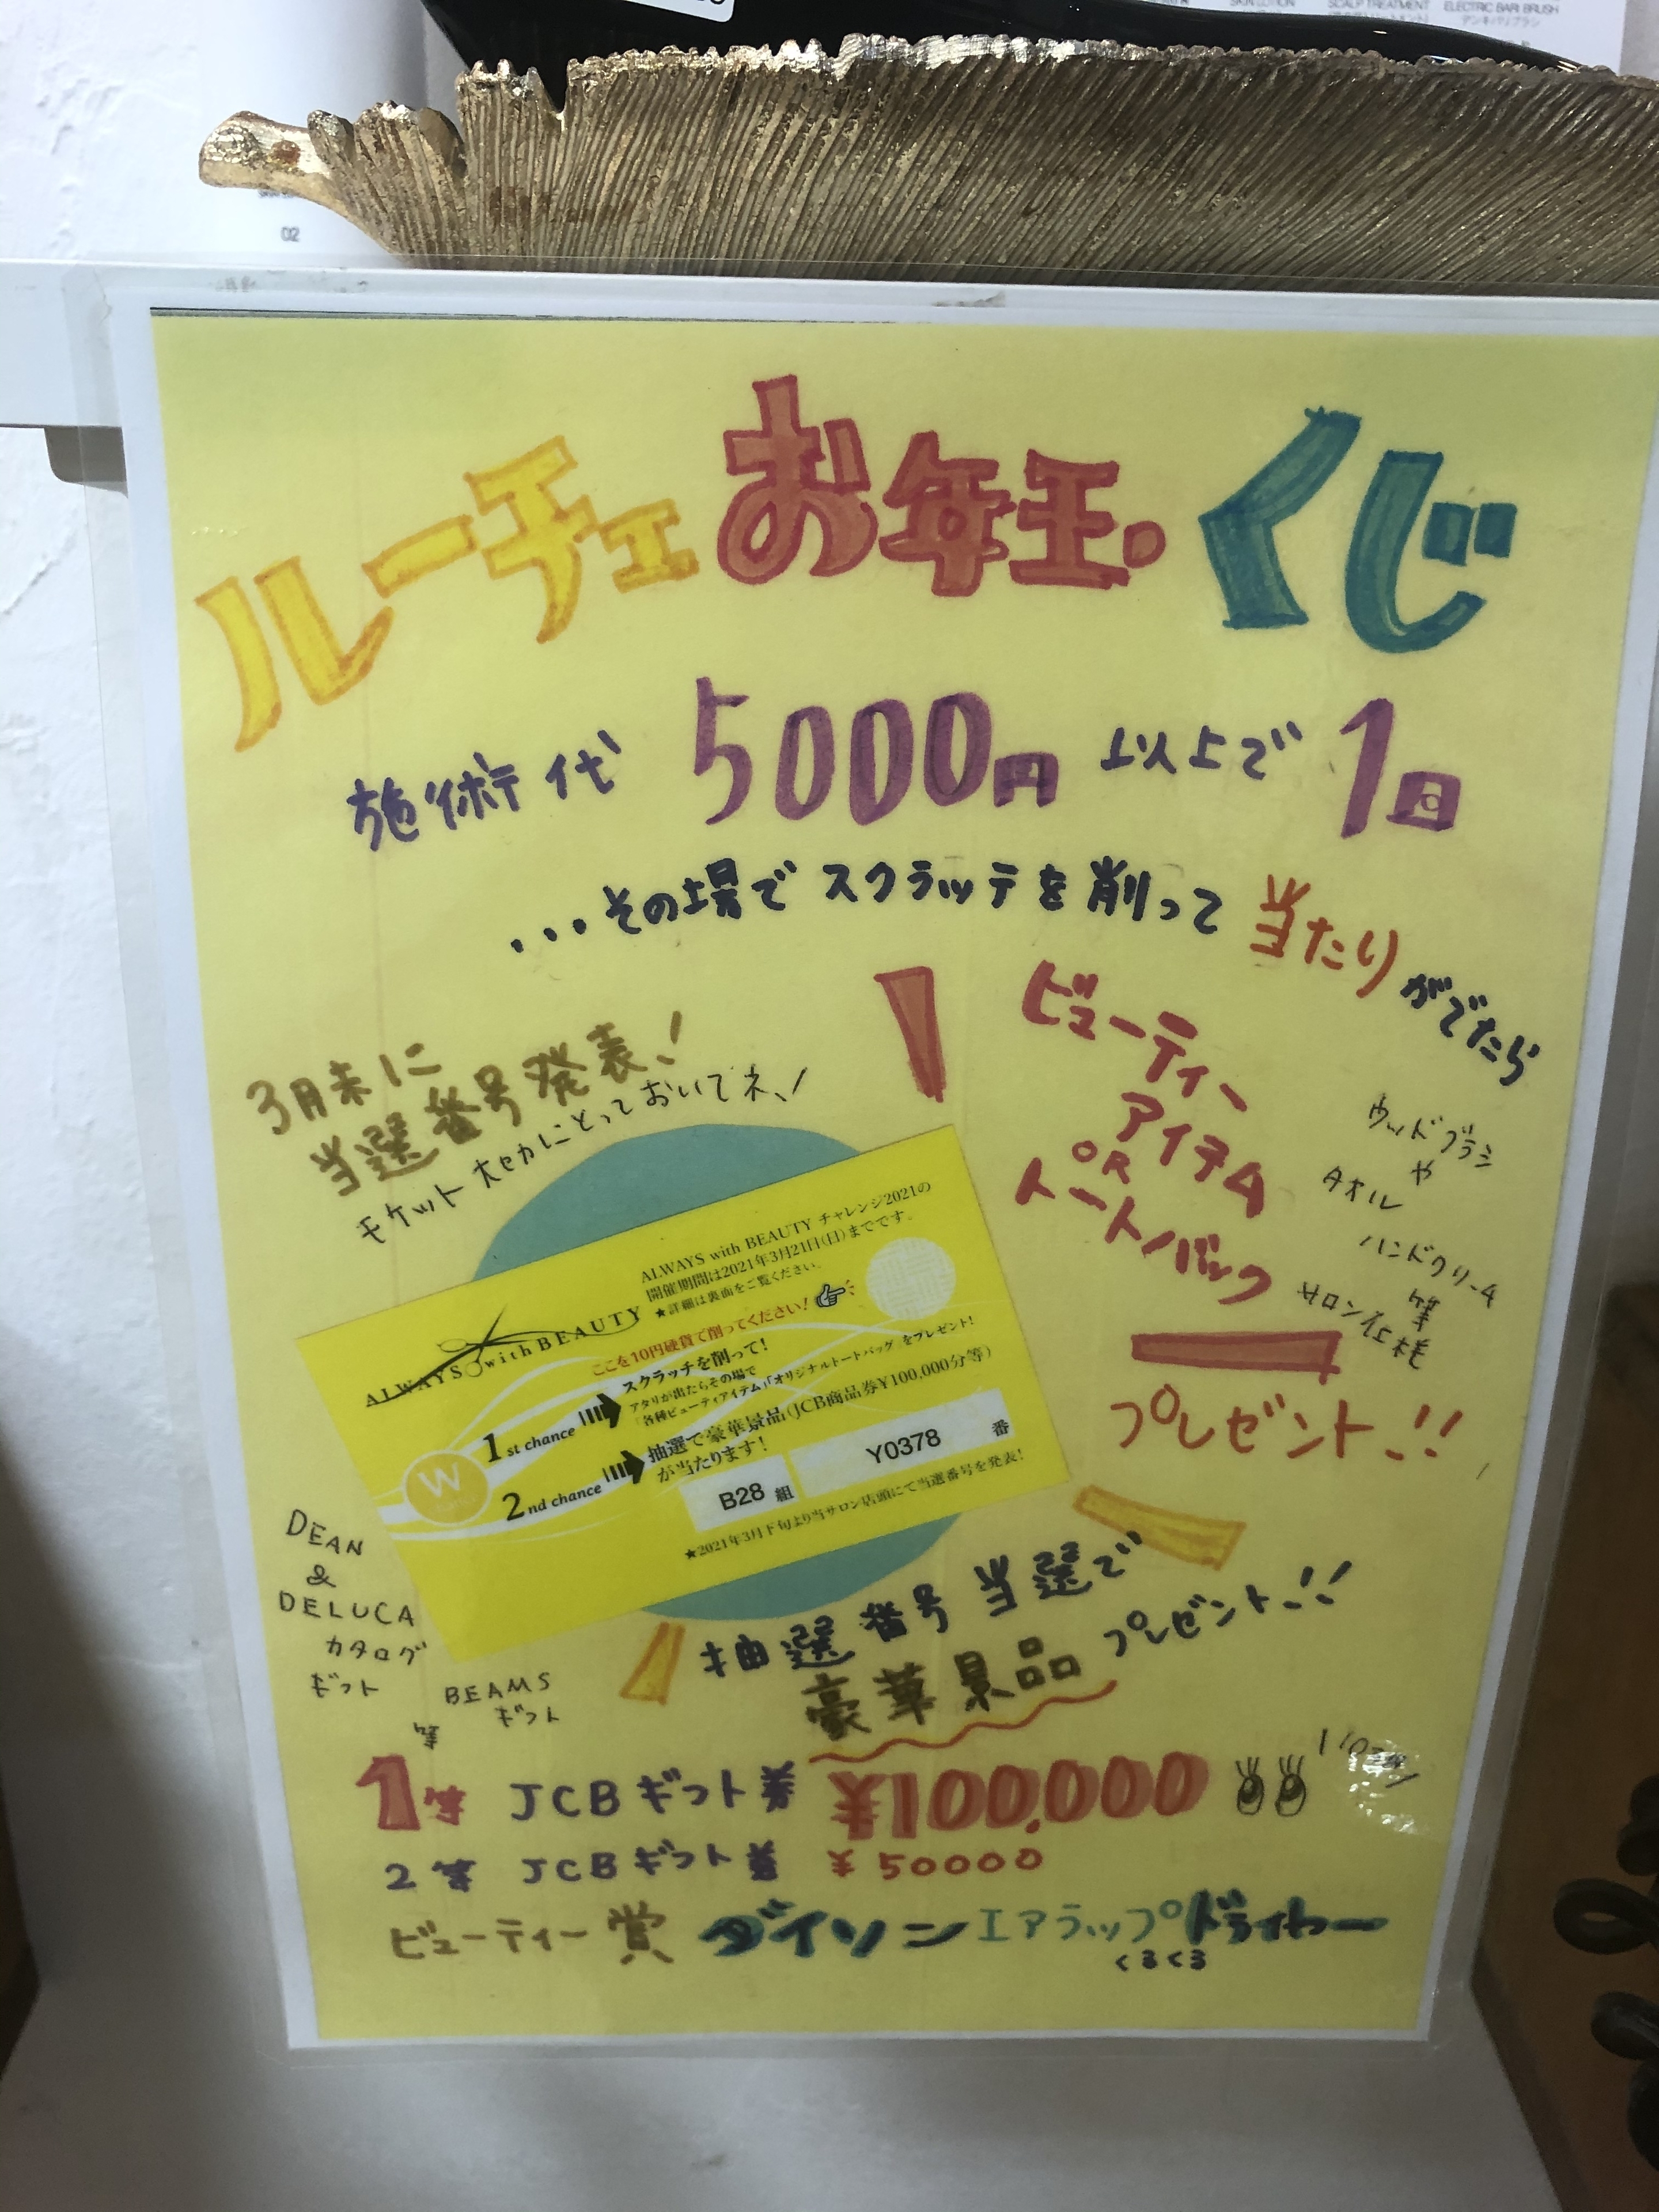 SKIN LOTION
SCALP TREATMENT
ELECTRIC BARI BRUSH
デンキバリブラシ
02
ルーチェお年玉くじ
施術代 5000円 以上で 1回
...その場でスクラッチを削って当たりがでたら
ビューティー
アイテム
OR
トートバック
ウッドブラシ
や
タオル
ハンドクリーム
等
サロン仕様
プレゼント!!
3月末に
当選番号発表!
チケット大セカにとっておいてネ!
ALWAYS with BEAUTY チャレンジ2021の
開催期間は2021年3月21日(日)までです。
★詳細は裏面をご覧ください。
ALWAYS with BEAUTY
ここを10円硬貨で削ってください!
1st chance
スクラッチを削って!
アタリが出たらその場で
「各種ビューティアイテム」「オリジナルトートバッグ」をプレゼント!
2nd chance
抽選で豪華景品(JCB商品券¥100,000分等)
が当たります!
W
B28 組
Y0378 番
★2021年3月下旬より当サロン店頭にて当選番号を発表!
抽選番号当選で
豪華景品プレゼント!!
DEAN
&
DELUCA
カタログ
ギフト
BEAMS
ギフト
等
1等 JCBギフト券 ¥100,000
2等 JCBギフト券 ¥50000
ビューティー賞 ダイソン エアラップドライヤー
くるくる